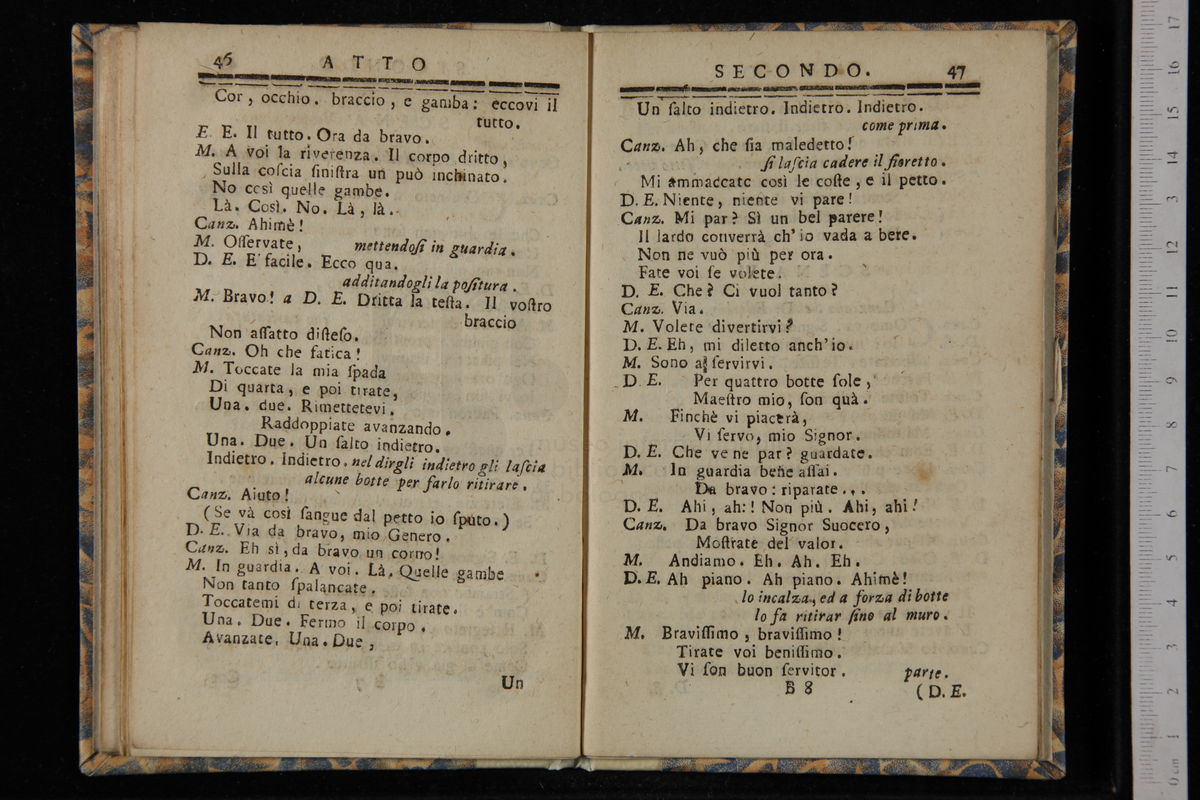 46 ATTO
Cor, occhio. braccio, e gamba: eccovi il
tutto.
E. E. Il tutto. Ora da bravo.
M. A voi la riverenza. Il corpo dritto,
Sulla coſcia ſiniſtra un può inchinato.
No così quelle gambe.
Là. Così. No. Là, là.
Canz. Ahimè!
M. Oſſervate, mettendoſi in guardia.
D. E. E' facile. Ecco qua.
additandogli la poſitura.
M. Bravo! a D. E. Dritta la teſta. Il voſtro
braccio
Non aſſatto diſteſo.
Canz. Oh che fatica!
M. Toccate la mia ſpada
Di quarta, e poi tirate,
Una. due. Rimettetevi.
Raddoppiate avanzando.
Una. Due. Un ſalto indietro.
Indietro. Indietro. nel dirgli indietro gli laſcia
alcune botte per farlo ritirare.
Canz. Aiuto!
(Se và così ſangue dal petto io ſputo.)
D. E. Via da bravo, mio Genero.
Canz. Eh sì, da bravo un corno!
M. In guardia. A voi. Là. Quelle gambe
Non tanto ſpalancate.
Toccatemi di terza, e poi tirate.
Una. Due. Fermo il corpo.
Avanzate. Una. Due,
Un
SECONDO. 47
Un ſalto indietro. Indietro. Indietro.
come prima.
Canz. Ah, che ſia maledetto!
ſi laſcia cadere il fioretto.
Mi ammaccate così le coſte, e il petto.
D. E. Niente, niente vi pare!
Canz. Mi par? Sì un bel parere!
Il lardo converrà ch'io vada a bere.
Non ne vuò più per ora.
Fate voi ſe volete.
D. E. Che? Ci vuol tanto?
Canz. Via.
M. Volete divertirvi?
D. E. Eh, mi diletto anch'io.
M. Sono a ſervirvi.
D. E. Per quattro botte ſole,
Maeſtro mio, ſon quà.
M. Finchè vi piacerà,
Vi ſervo, mio Signor.
D. E. Che ve ne par? guardate.
M. In guardia bene aſſai.
Da bravo: riparate...
D. E. Ahi, ahi! Non più. Ahi, ahi!
Canz. Da bravo Signor Suocero,
Moſtrate del valor.
M. Andiamo. Eh. Ah. Eh.
D. E. Ah piano. Ah piano. Ahimè!
lo incalza, ed a forza di botte
lo fa ritirar ſino al muro.
M. Braviſſimo, braviſſimo!
Tirate voi beniſſimo.
Vi ſon buon ſervitor. parte.
B 8 (D. E.
17
16
15
14
13
12
11
10
9
8
7
6
5
4
3
2
1
0 cm